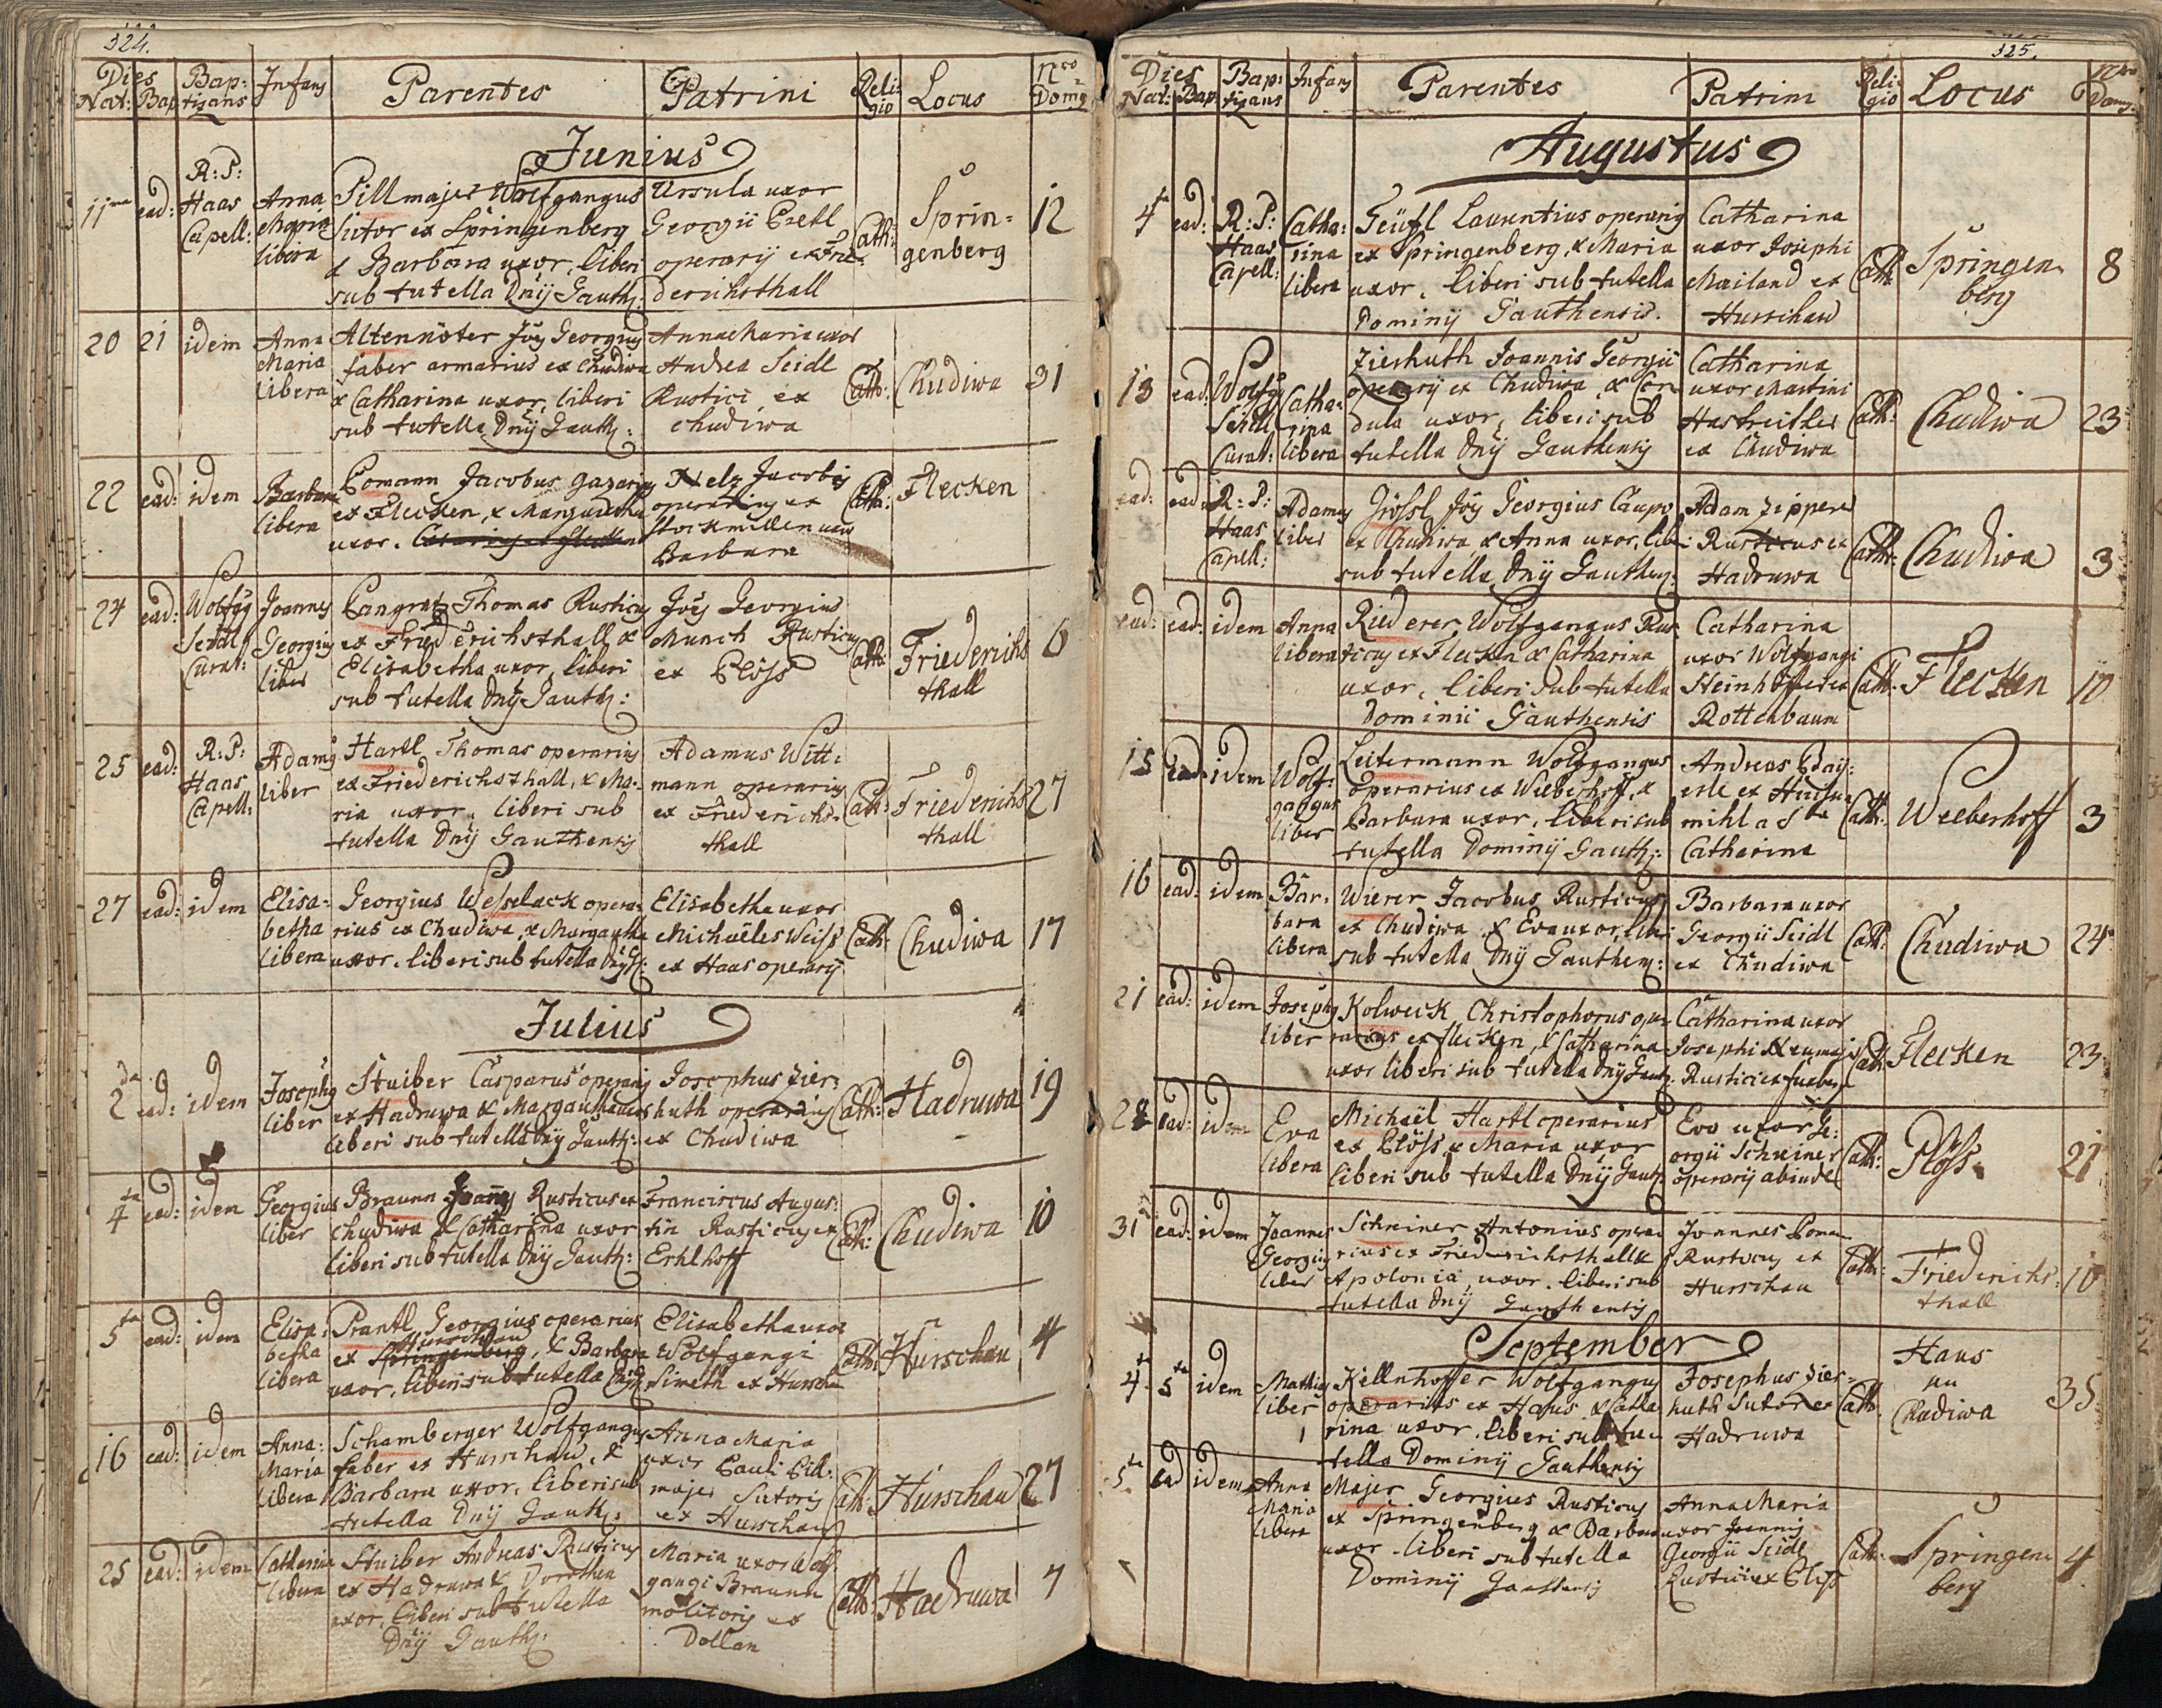 324.
Dies Nat: Bap: Baptizans Infans Parentes Patrini Religio Locus Nro Domq
Junius
11ma ead: R: P: Haas Capell:
Anna Maria libera
Pillmajer Wolfgangus
Sutor ex Springenberg
& Barbara uxor, liberi
sub tutella Dnÿ Gauth:
Ursula uxor
Georgii Pretl
operarÿ ex Frie-
derichsthall
Cath: Sprin=
genberg
12
20 21 idem
Anna Maria libera
Altennöter Joës Georgius
faber armarius ex Chudiwa
& Catharina uxor, liberi
sub tutella Dnÿ Gauth:
Anna Maria uxor
Andrea Seidl
Rustici ex
Chudiwa
Cath: Chudiwa 31
22 ead: idem
Barbara libera
Pomann Jacobus
ex Flecken, & Margaretha
uxor.
Nelz Jacobus
operarius ex
Barbara
Cath: Flecken
24 ead: Wolfgg Seidl Curat:
Joannes Georgius liber
Pangratz Thomas Rusticus
ex Friederichsthall &
Elisabetha uxor, liberi
sub tutella Dnÿ Gauth:
Joës Georgius
Munch Rusticus
ex Plöss
Cath: Friederichs
thall
6
25 ead: R: P: Haas Capell:
Adamus liber
Hartl Thomas operarius
ex Friederichsthall, & Ma-
ria uxor, liberi sub
tutella Dnÿ Gauthensis
Adamus Witt=
mann operarius
ex Friederichs-
thall
Cath: Friederichs
thall
27
27 ead: idem
Elisa= betha libera
Georgius Wesselack opera-
rius ex Chudiwa, & Margaretha
uxor, liberi sub tutella Dnÿ G:
Elisabetha uxor
Michaëles Weiss
ex Haas operarÿ
Cath: Chudiwa 17
Julius
2da ead: idem
Josephus liber
Stuiber Casparus operarius
ex Hadruwa & Margaretha uxor
liberi sub tutella Dnÿ Gauth:
Josephus Zier=
huth operarius
ex Chudiwa
Cath: Hadruwa 19
4ta ead: idem
Georgius liber
Braunn Joannes Rusticus ex
Chudiwa & Catharina uxor
liberi sub tutella Dnÿ Gauth:
Franciscus Augus=
tin Rusticus ex
Erhlhoff
Cath: Chudiwa 10
5ta ead: idem
Elisa= betha libera
Prantl Georgius operarius
Hurschau
ex Springenberg, & Barbara
uxor, liberi sub tutella
Elisabetha uxor
Wolfgangi
Simeth ex Hurschau
Cath: Hurschau 4
16 ead: idem
Anna= Maria libera
Schamberger Wolfgangus
faber ex Hurschau, &
Barbara uxor, liberi sub
tutella Dnÿ Gauth:
Anna Maria
uxor Pauli Pill=
majer Sutoris
ex Hurschau
Cath: Hurschau 27
25 ead: idem
Catharina libera
Stuiber Andreas Rusticus
ex Hadruwa & Dorothea
uxor, liberi sub tutella
Dnÿ Gauth:
Maria uxor Wolf
gangi Braunn
molitoris ex
Dollan
Cath: Hadruwa 7
325.
Dies Nat: Bap: Baptizans Infans Parentes Patrini Religio Locus Nro Domq
Augustus
4ta ead: R: P: Haas Capell:
Catha= rina libera
Teüfl Laurentius operarius
ex Springenberg, & Maria
uxor, liberi sub tutella
Dominÿ Gauthensis.
Catharina
uxor Josephi
Mailand ex
Hurschau
Cath: Springen=
berg
8
13 ead: Wolfgg Seidl Curat:
Catha= rina libera
Zierhuth Joannis Georgii
operarÿ ex Chudiwa, & Cor
dula uxor, liberi sub
tutella Dnÿ Gauthensis
Catharina
uxor Martini
Hastreither
ex Chudiwa
Cath: Chudiwa 23
ead: ead: R: P: Haas Capell:
Adamus liber
Grössl Joës Georgius Caupo
ex Chudiwa & Anna uxor, libe
sub tutella Dnÿ Gauthens:
Adam Zipperer
Rusticus ex
Hadruwa
Cath: Chudiwa 3
ead: ead: idem
Anna libera
Riederer Wolfgangus Rus
ticus ex Flecken & Catharina
uxor, liberi sub tutella
Dominii Gauthensis
Catharina
uxor Wolfgangi
Rottenbaum
Cath: Flecken 10
15 ead: idem
Wolf= gangus liber
Leitermann Wolfgangus
operarius ex Weeberhoff, &
Barbara uxor, liberi sub
tutella Dominÿ Gauth:
Andreas
Catharina
Cath: Weeberhoff 3
16 ead: idem
Bar= bara libera
Wierer Jacobus Rusticus
ex Chudiwa & Eva uxor, liberi
sub tutella Dnÿ Gauthens:
Barbara uxor
Georgii Seidl
ex Chudiwa
Cath: Chudiwa 24
21 ead: idem
Josephus liber
Kolweck Christophorus ope
rarius ex Flecken, & Catharina
uxor liberi sub tutella Dnÿ Gauth:
Catharina uxor
Josephi Neumajer
Rustici ex
Cath: Flecken 23
28 ead: idem
Eva libera
Michaël Hartl operarius
ex Plöss & Maria uxor
liberi sub tutella Dnÿ Gauth:
Eva uxor Ge=
orgii Schreiner
operarÿ abinde
Cath: Plöss 21
31 ead: idem
Joannes Georgius liber
Schreiner Antonius opera
rius ex Friederichsthall &
Apolonia uxor. liberi sub
tutella Dnÿ Gauthensis
Joannes Poman
Rusticus ex
Hurschau
Cath: Friederichs=
thall
10
September
4ta 5ta idem
Mathias liber
Kellnhoffer Wolfgangus
operarius ex Haus & Catha
rina uxor, liberi sub tu
tella Dominÿ Gauthensis
Josephus Zier=
huth Sutor ex
Hadruwa
Cath: Haus
Chudiwa
35
5ta ead idem
Anna Maria libera
Majer Georgius Rusticus
ex Springenberg & Barbara
uxor liberi sub tutella
Dominÿ Gauthensis
Anna Maria
uxor Joannis
Georgii Seidl
Rustici ex Plöss
Cath: Springen
berg
4